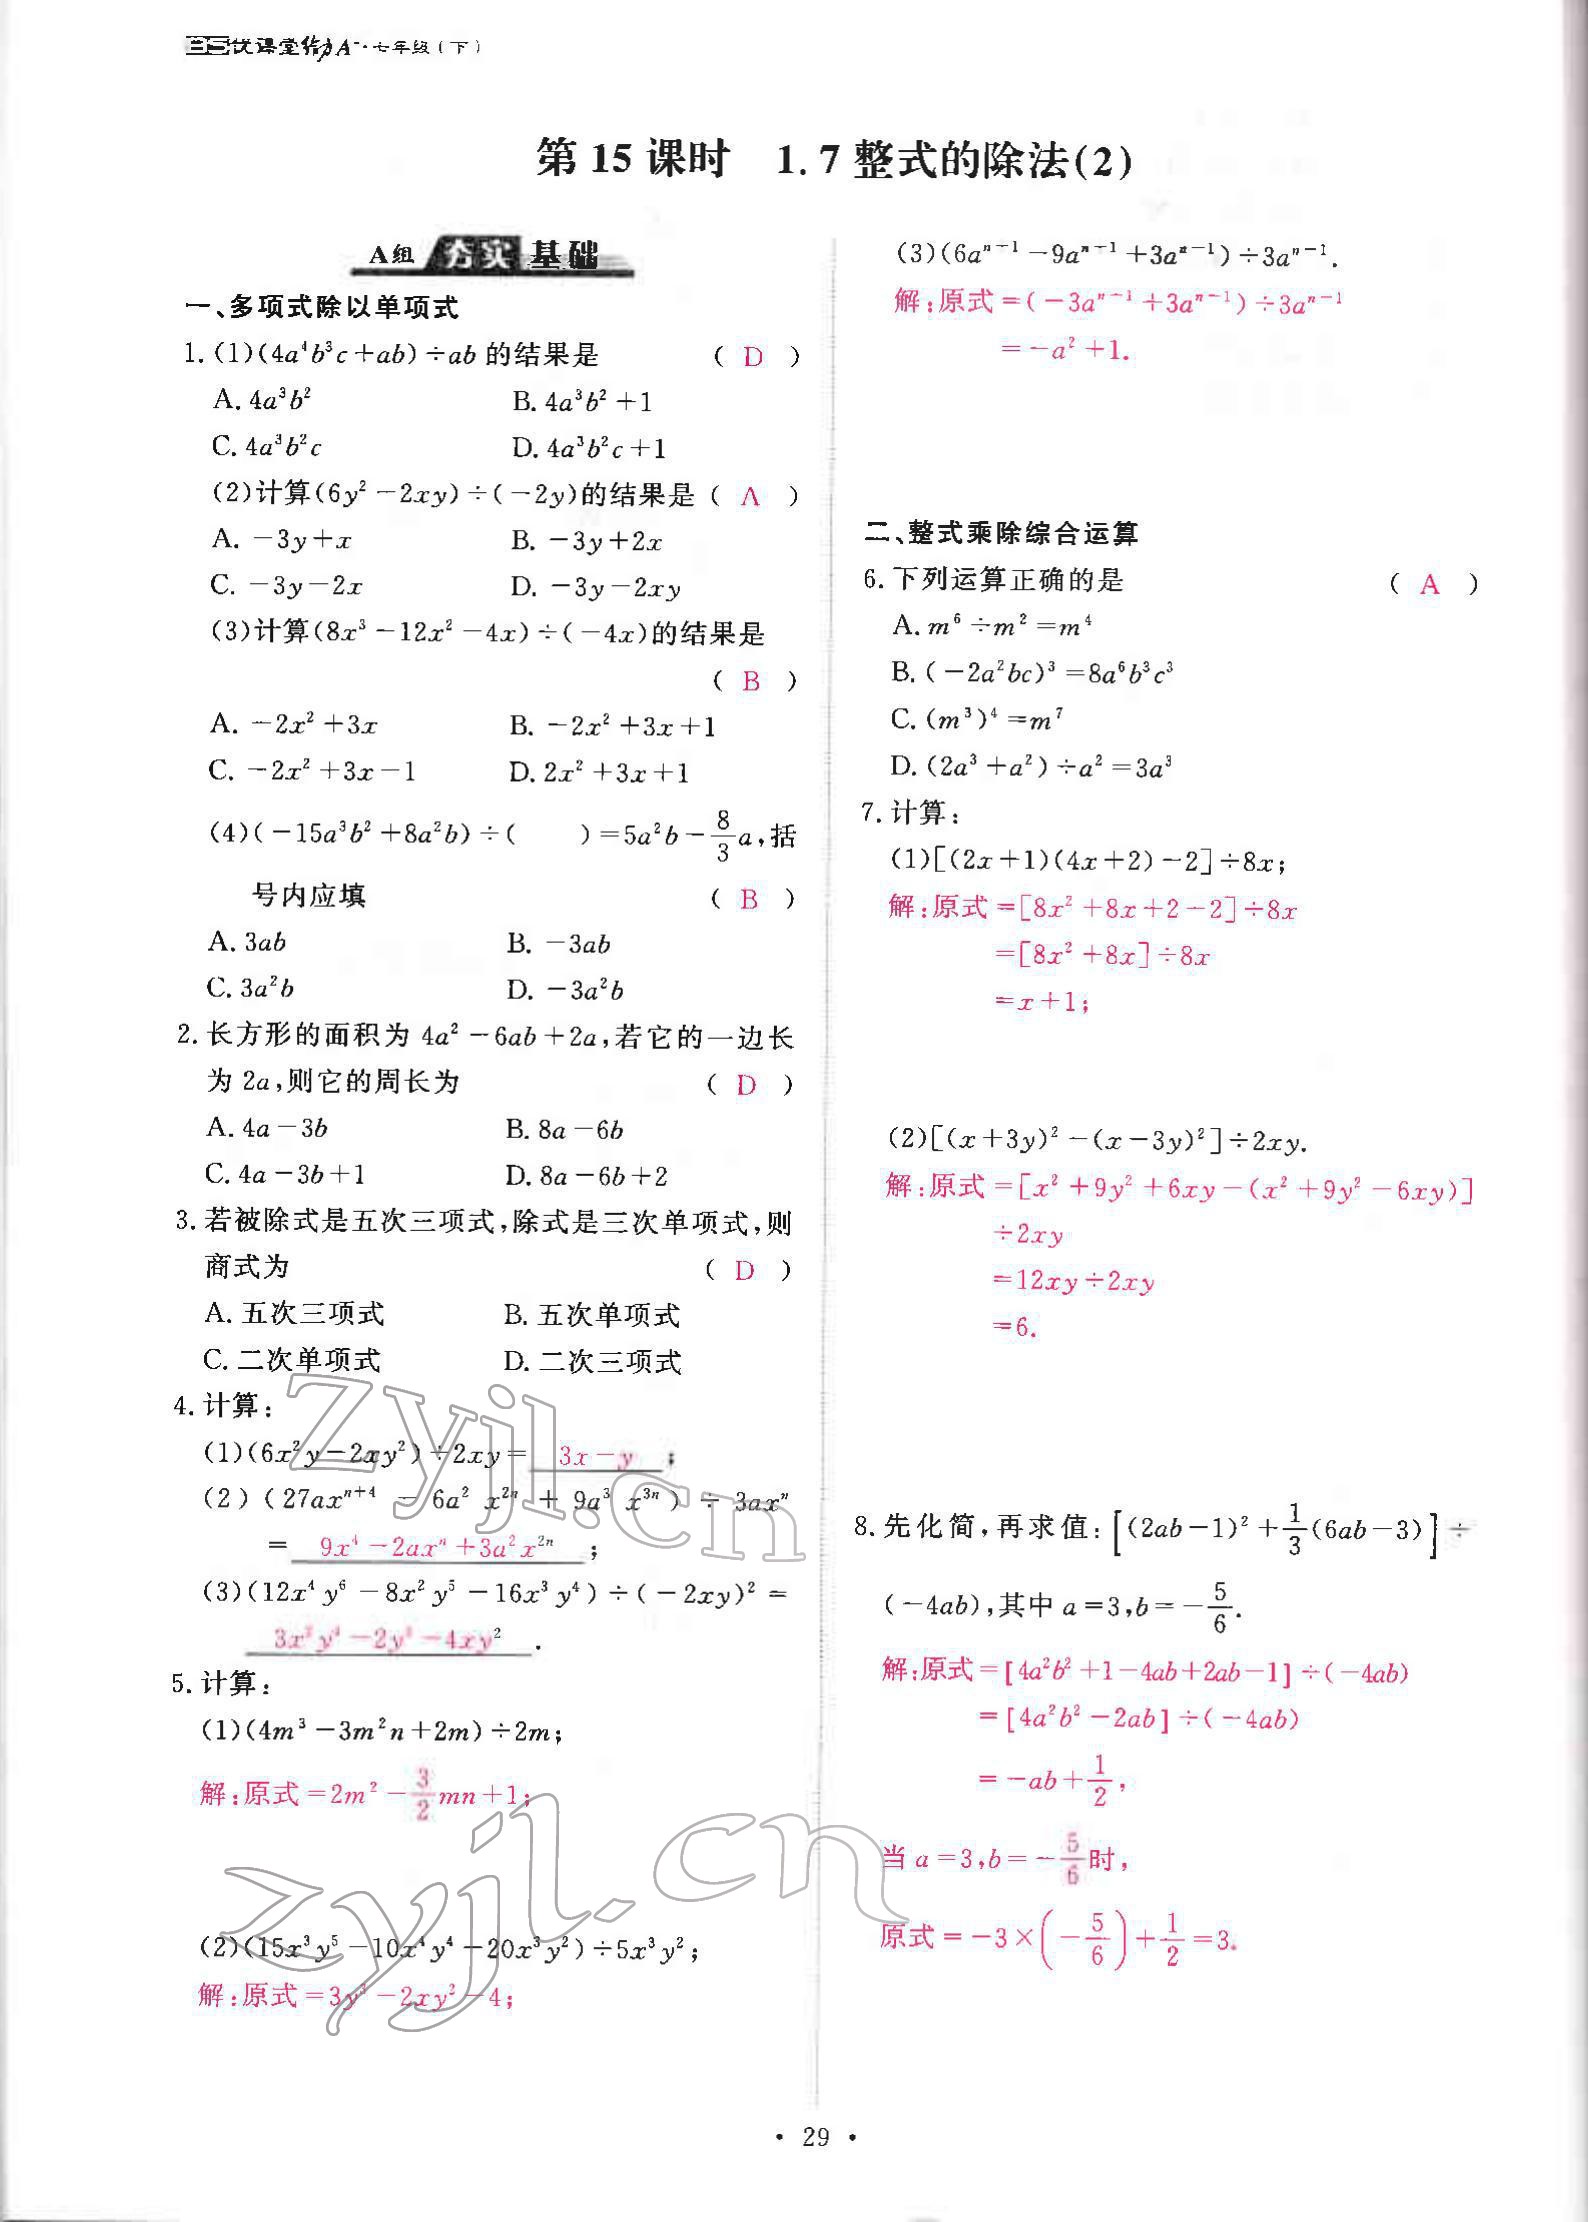 优课堂给力A⁺·七年级(下)
第15课时 1.7整式的除法(2)
A组 夯实基础
一、多项式除以单项式
1.(1)(4a⁴b³c+ab)÷ab的结果是 ( D )
A. 4a³b² B. 4a³b²+1
C. 4a³b²c D. 4a³b²c+1
(2)计算(6y²-2xy)÷(-2y)的结果是 ( A )
A. -3y+x B. -3y+2x
C. -3y-2x D. -3y-2xy
(3)计算(8x³-12x²-4x)÷(-4x)的结果是
( B )
A. -2x²+3x B. -2x²+3x+1
C. -2x²+3x-1 D. 2x²+3x+1
(4)(-15a³b²+8a²b)÷( )=5a²b-8/3a,括
号内应填 ( B )
A. 3ab B. -3ab
C. 3a²b D. -3a²b
2.长方形的面积为4a²-6ab+2a,若它的一边长
为2a,则它的周长为 ( D )
A. 4a-3b B. 8a-6b
C. 4a-3b+1 D. 8a-6b+2
3.若被除式是五次三项式,除式是三次单项式,则
商式为 ( D )
A. 五次三项式 B. 五次单项式
C. 二次单项式 D. 二次三项式
4.计算:
(1)(6x²y-2xy²)÷2xy= 3x-y ;
(2)(27axⁿ⁺⁴-6a²x²ⁿ+9a³x³ⁿ)÷3axⁿ
= 9x⁴-2axⁿ+3a²x²ⁿ ;
(3)(12x⁴y⁶-8x²y⁵-16x³y⁴)÷(-2xy)²=
3x²y⁴-2y³-4xy² .
5.计算:
(1)(4m³-3m²n+2m)÷2m;
解:原式=2m²-3/2mn+1;
(2)(15x³y⁵-10x⁴y⁴-20x³y²)÷5x³y²;
解:原式=3y³-2xy²-4;
(3)(6aⁿ⁻¹-9aⁿ⁻¹+3aⁿ⁻¹)÷3aⁿ⁻¹.
解:原式=(-3aⁿ⁻¹+3aⁿ⁻¹)÷3aⁿ⁻¹
=-a²+1.
二、整式乘除综合运算
6.下列运算正确的是 ( A )
A. m⁶÷m²=m⁴
B. (-2a²bc)³=8a⁶b³c³
C. (m³)⁴=m⁷
D. (2a³+a²)÷a²=3a³
7.计算:
(1)[(2x+1)(4x+2)-2]÷8x;
解:原式=[8x²+8x+2-2]÷8x
=[8x²+8x]÷8x
=x+1;
(2)[(x+3y)²-(x-3y)²]÷2xy.
解:原式=[x²+9y²+6xy-(x²+9y²-6xy)]
÷2xy
=12xy÷2xy
=6.
8.先化简,再求值:[(2ab-1)²+1/3(6ab-3)]÷
(-4ab),其中a=3,b=-5/6.
解:原式=[4a²b²+1-4ab+2ab-1]÷(-4ab)
=[4a²b²-2ab]÷(-4ab)
=-ab+1/2,
当a=3,b=-5/6时,
原式=-3×(-5/6)+1/2=3.
zyjl.cn
zyjl.cn
• 29 •